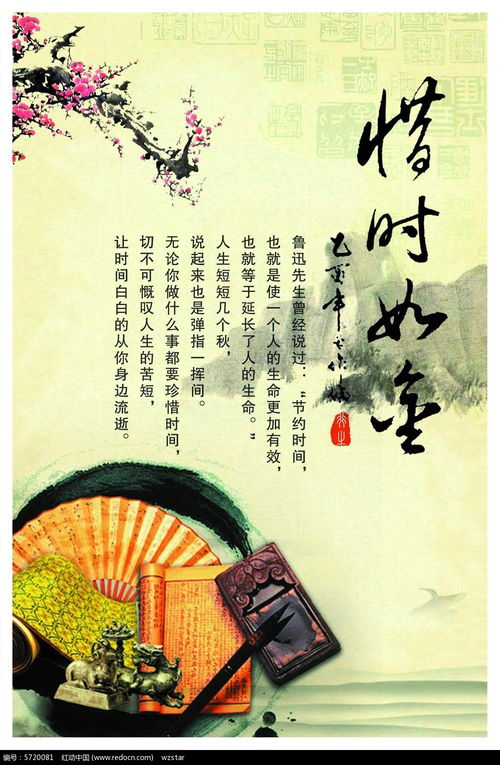 惜时如金
鲁迅先生曾经说过：“节约时间，
也就是使一个人的生命更加有效，
也就等于延长了人的生命。”
人生短短几个秋，
说起来也是弹指一挥间。
无论你做什么事都要珍惜时间，
切不可慨叹人生的苦短，
让时间白白的从你身边流逝。
编号：5720081 红动中国 (www.redocn.com) wzstar